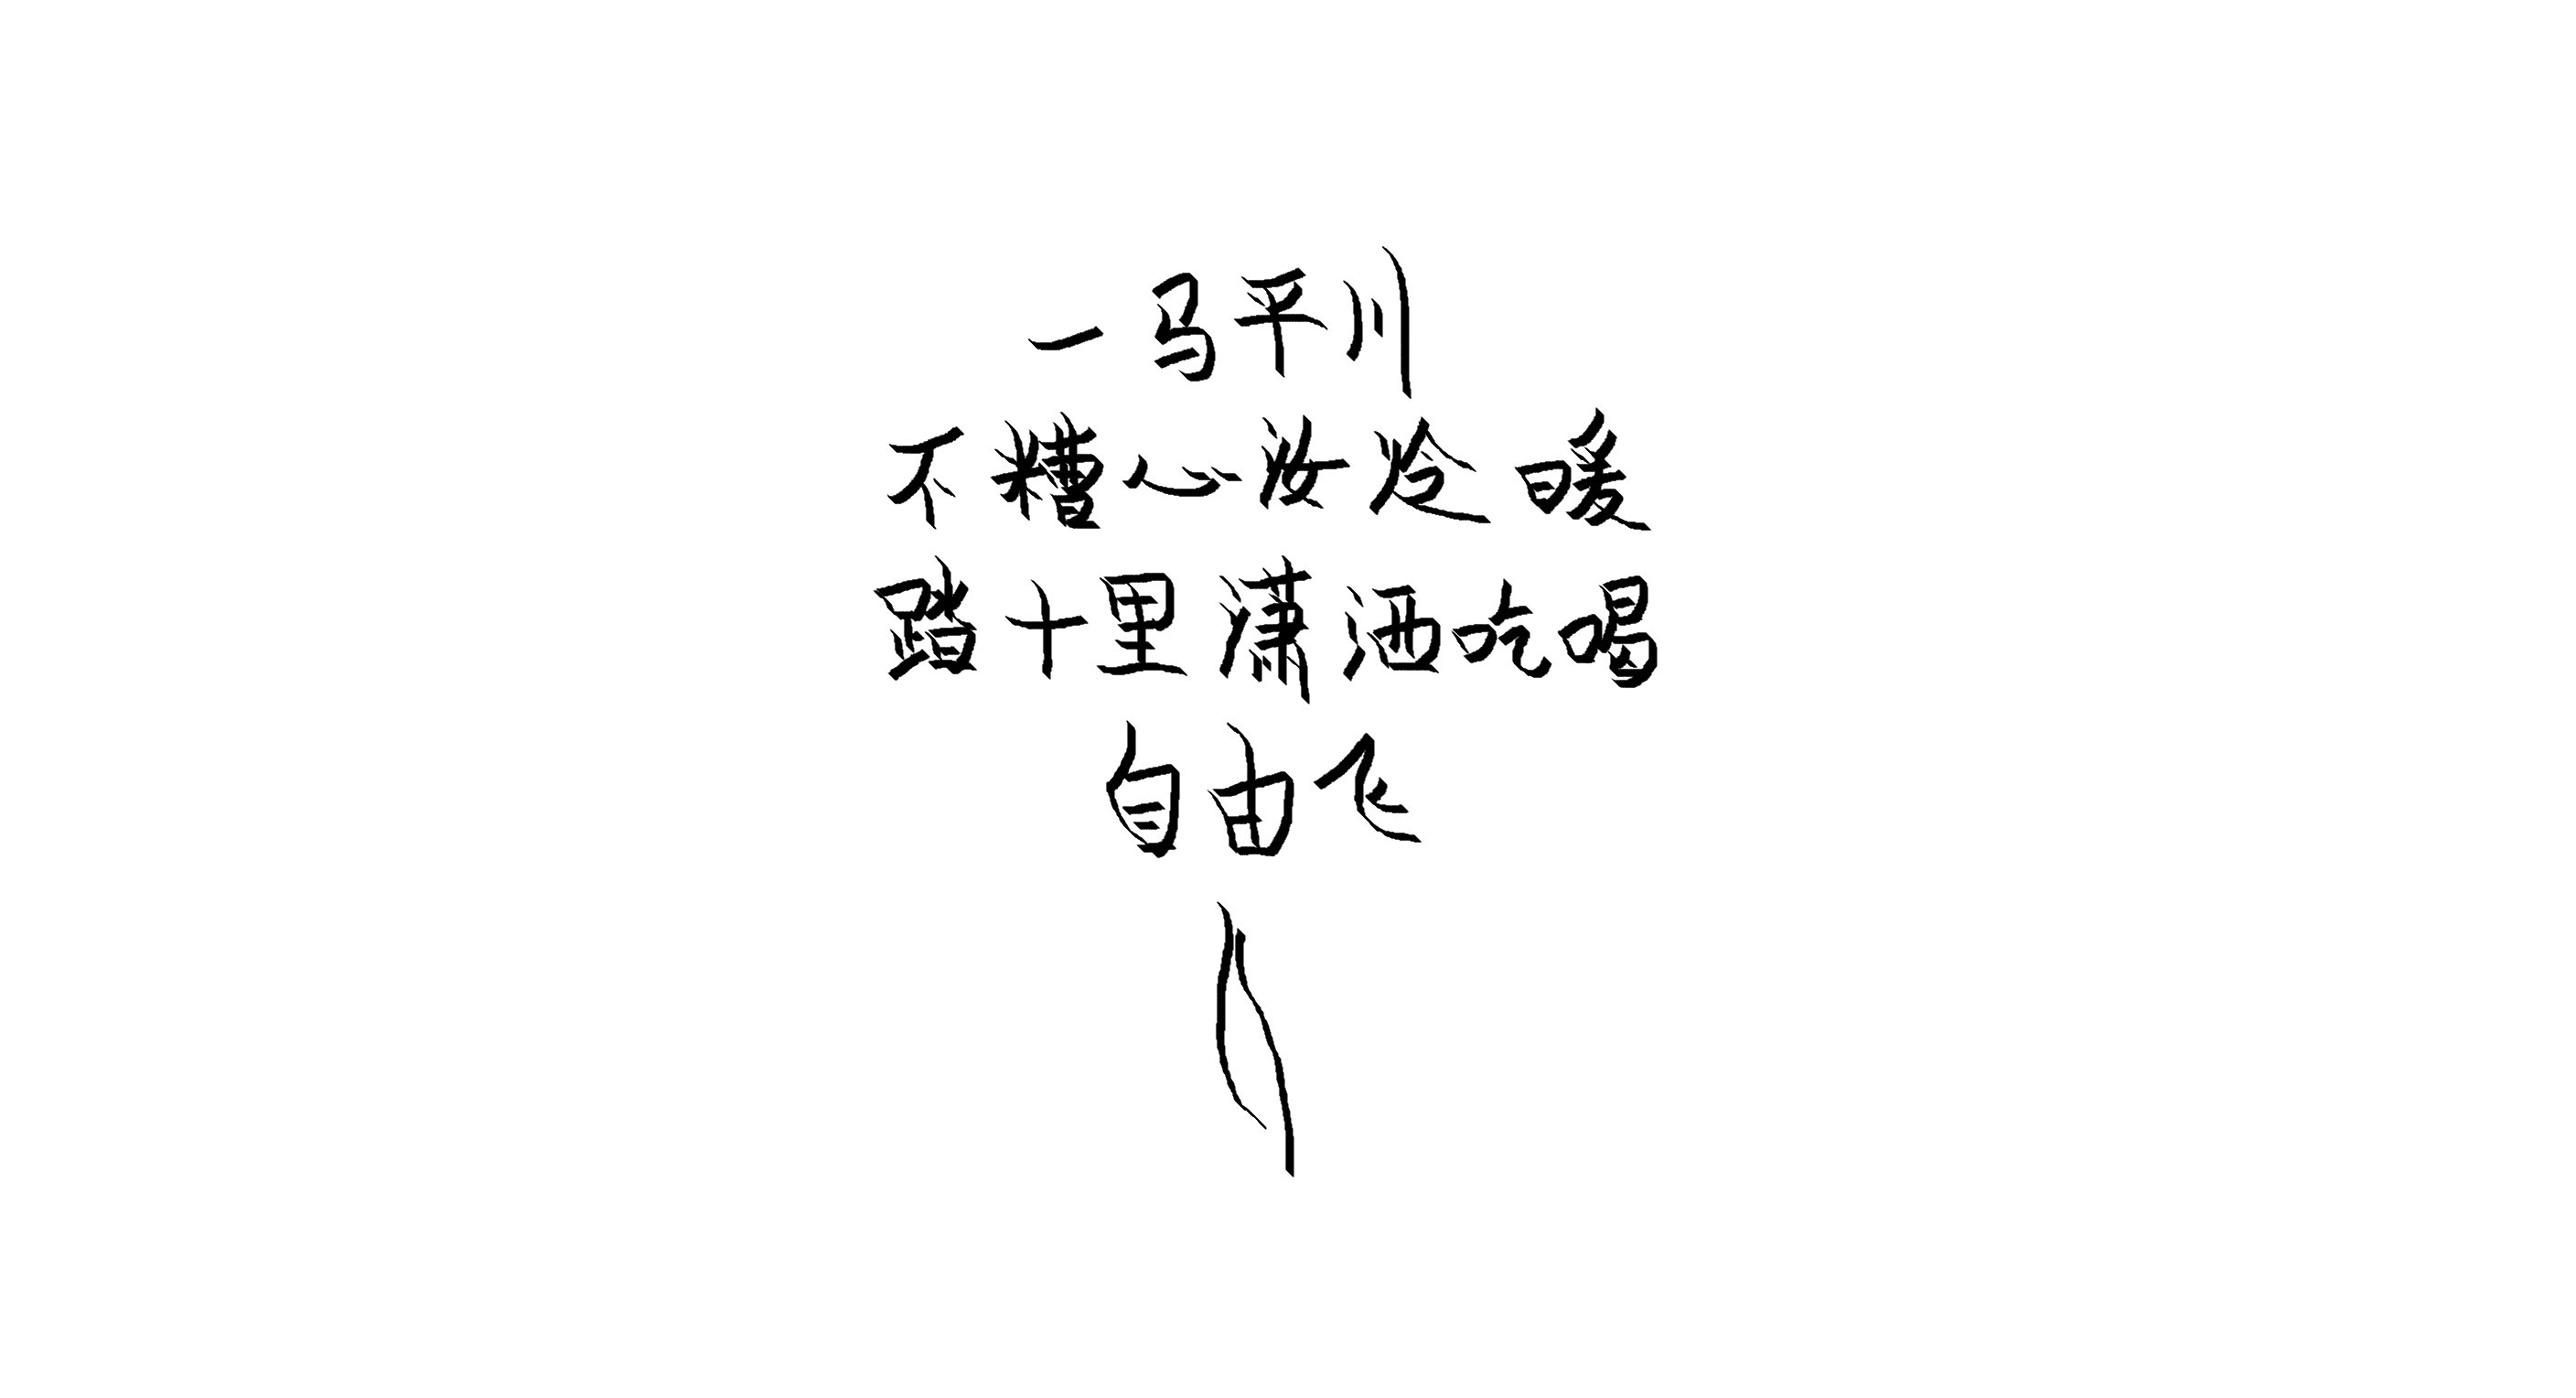 一马平川
不糟心汝冷暖
踏十里潇洒吃喝
自由飞